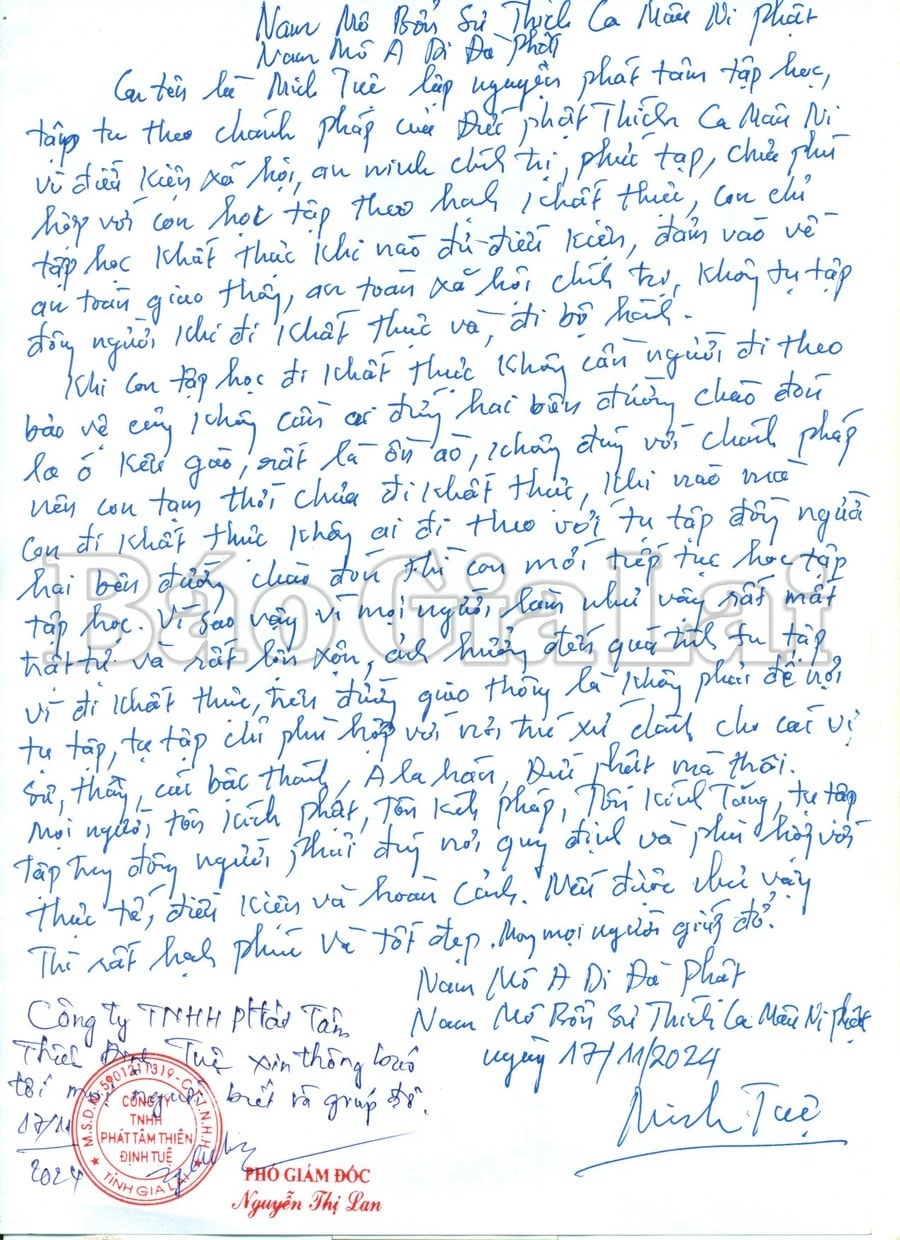 Nam Mô Bổn Sư Thích Ca Mâu Ni Phật
Nam Mô A Di Đà Phật
Con tên là Minh Tuệ lập nguyện phát tâm tập học,
tập tu theo chánh pháp của Đức Phật Thích Ca Mâu Ni
vì điều kiện xã hội, an ninh chính trị, phức tạp, chưa phù
hợp với con học tập theo hạnh khất thực, con chỉ
tập học khất thực khi nào đủ điều kiện, đảm vảo về
an toàn giao thông, an toàn xã hội chính trị, không tụ tập
đông người khi đi khất thực và, đi bộ hành.
Khi con tập học đi khất thực không cần người đi theo
bảo vệ cũng không cần ai đứng hai bên đường chào đón
la ó kêu gào, rất là ồn ào, không đúng với chánh pháp
nên con tạm thời chưa đi khất thực, khi nào mà
con đi khất thực không ai đi theo với tụ tập đông người
hai bên đường chào đón thì con mới tiếp tục học tập
tập học. Vì sao vậy vì mọi người làm như vậy rất mất
trật tự và rất lộn xộn, ảnh hưởng đến quá trình tu tập
vì đi khất thực, trên đường giao thông là không phải để nơi
tụ tập, tụ tập chỉ phù hợp với nơi trú xứ dành cho các vị
sư, thầy, các bậc thánh, A la hán, Đức phật mà thôi.
Mọi người tôn kính phật, Tôn kính pháp, Tôn kính Tăng, tụ tập
tập trung đông người phải đúng nơi quy định và phù hợp với
thực tế, điều kiện và hoàn cảnh. Nếu được như vậy
Thì rất hạnh phúc và tốt đẹp. Mong mọi người giúp đỡ.
Nam Mô A Di Đà Phật
Nam Mô Bổn Sư Thích Ca Mâu Ni Phật
ngày 17/11/2024
Minh Tuệ
Công ty TNHH Phát Tâm
Thiền Định Tuệ xin thông báo
tới mọi người biết và giúp đỡ.
17/11
2024
M.S.D.N: 5901211319 - C.T.T.N.H.H
CÔNG TY
TNHH
PHÁT TÂM THIỀN
ĐỊNH TUỆ
TỈNH GIA LAI
PHÓ GIÁM ĐỐC
Nguyễn Thị Lan
Báo Gia Lai